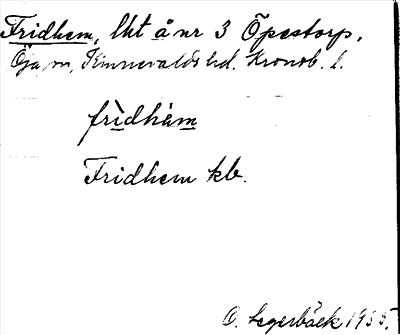 Fridhem, lht å nr 3 Öpestorp,
Öja sn, Kinnevalds hd. Kronob. l.
frìdhèm
Fridhem kb.
O. Segerbäck 1935.